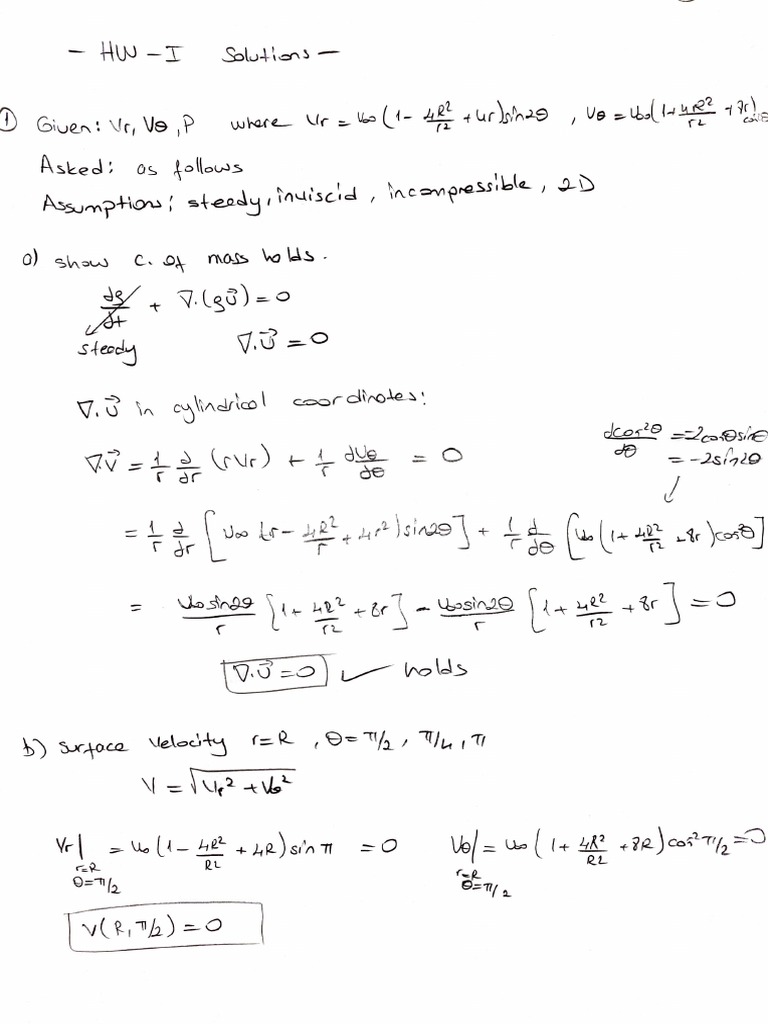 - HW - I Solutions -
① Given: Vr, Vθ, P where Vr = V∞(1 - 4R²/r² + 4r)sin2θ , Vθ = V∞(1+4R²/r² + 8r)cos²θ
Asked: as follows
Assumption; steady, inviscid, incompressible, 2D
a) show c. of mass holds.
dρ/dt + ∇.(ρU⃗) = 0
steady ∇.U⃗ = 0
∇.U⃗ in cylindrical coordinates:
dcos²θ/dθ = -2cosθsinθ
= -2sin2θ
∇.V⃗ = 1/r d/dr (rVr) + 1/r dVθ/dθ = 0
= 1/r d/dr [V∞ (r - 4R²/r + 4r²)sin2θ] + 1/r d/dθ [V∞(1+4R²/r² + 8r)cos²θ]
= V∞sin2θ/r [1+4R²/r² + 8r] - V∞sin2θ/r [1+4R²/r² + 8r] = 0
∇.U⃗ = 0 ✓ holds
b) surface velocity r=R , θ=π/2 , π/4, π
V = √(Vr² + Vθ²)
Vr| r=R θ=π/2 = V∞(1 - 4R²/R² + 4R)sinπ = 0 Vθ| r=R θ=π/2 = V∞(1 + 4R²/R² + 8R)cos²π/2 = 0
V(R, π/2) = 0